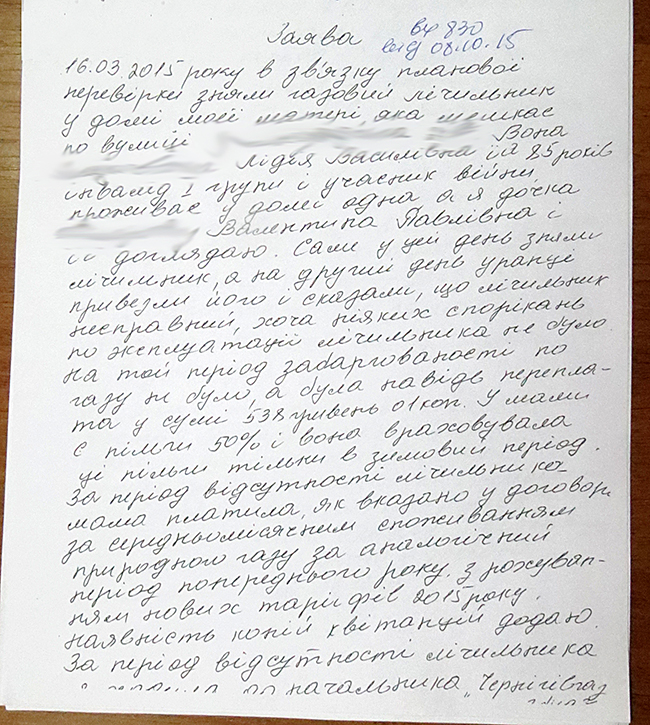 Заява
вх 830
від 08.10.15
16.03.2015 року в зв'язку планової
перевірки зняли газовий лічильник
у домі моєї матері, яка мешкає
по вулиці Вона
Лідія Василівна їй 85 років
інвалід 1 групи і учасник війни,
проживає у домі одна а я дочка
Валентина Павлівна і
її доглядаю. Саме у цей день зняли
лічильник, а на другий день уранці
привезли його і сказали, що лічильник
несправний, хоча ніяких спорікань
по эксплуатації лічильника не було.
На той період забаргованості по
газу не було, а була навідь перепла-
та у сумі 538 гривень 01 коп. У мами
є пільги 50% і вона враховувала
ці пільги тільки в зимовий період.
За період відсутності лічильника
мама платила, як вказано у договорі
за середньомісячним споживанням
природного газу за аналогічний
період попереднього року. з рохуван-
ням нових таріфів 2015 року.
наявність копій квітанцій додаю.
За період відсутності лічильника
до начальника „Чернігівгаз